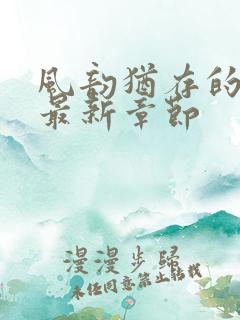 风韵犹存的
最新章节
漫漫步归
未经同意禁止转载